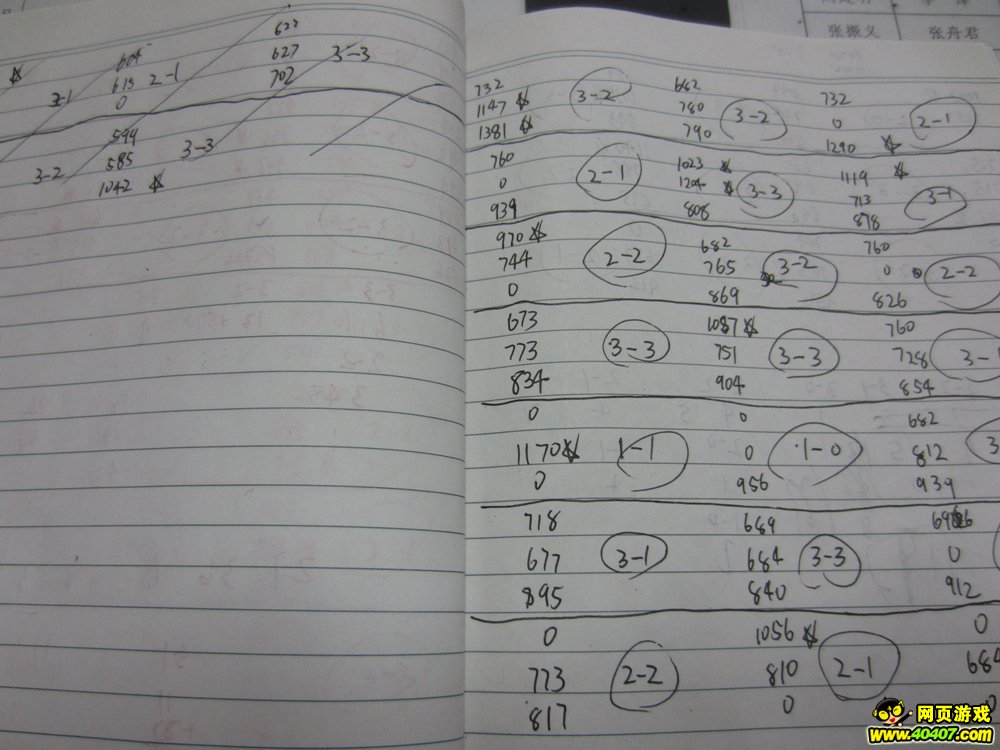 张振义 张舟君
604 622
2-1 613 2-1 627 3-3
0 702
599
3-2 585 3-3
1042
732 662 732
1147 3-2 780 3-2 0 2-1
1381 790 1290
760 1023 1119
0 2-1 1204 3-3 713 3-1
939 808 878
970 682 760
744 2-2 765 3-2 0 2-2
0 869 826
673 1087 760
773 3-3 751 3-3 728 3-1
834 904 854
0 0 682
1170 1-1 0 1-0 812 3
0 956 939
718 689
677 3-1 684 3-3 0
895 840 912
0 1056 0
773 2-2 810 2-1 684
817 0 0
网页游戏
www.40407.com